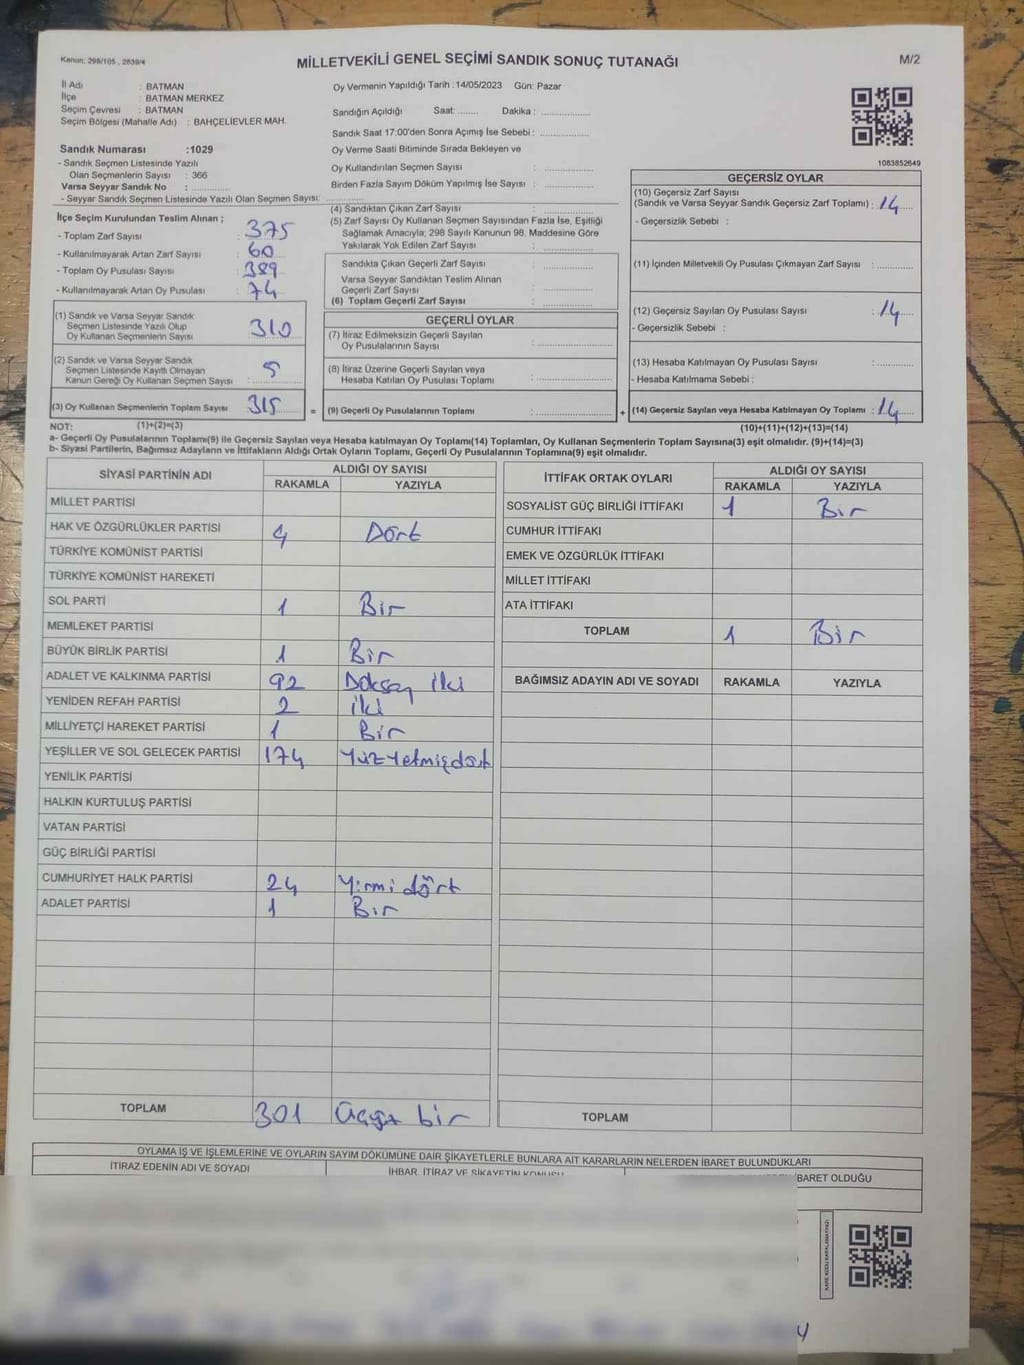 Kanun: 298/105 , 2839/4
MİLLETVEKİLİ GENEL SEÇİMİ SANDIK SONUÇ TUTANAĞI
M/2
İl Adı : BATMAN
İlçe : BATMAN MERKEZ
Seçim Çevresi : BATMAN
Seçim Bölgesi (Mahalle Adı) : BAHÇELİEVLER MAH.
Sandık Numarası :1029
- Sandık Seçmen Listesinde Yazılı
Olan Seçmenlerin Sayısı : 366
Varsa Seyyar Sandık No : ..............
- Seyyar Sandık Seçmen Listesinde Yazılı Olan Seçmen Sayısı: ..............
Oy Vermenin Yapıldığı Tarih :14/05/2023 Gün: Pazar
Sandığın Açıldığı Saat: ....... Dakika : ..............
Sandık Saat 17:00'den Sonra Açılmış İse Sebebi : ..............
Oy Verme Saati Bitiminde Sırada Bekleyen ve
Oy Kullandırılan Seçmen Sayısı : ..............
Birden Fazla Sayım Döküm Yapılmış İse Sayısı : ..............
1083852649
İlçe Seçim Kurulundan Teslim Alınan ;
- Toplam Zarf Sayısı : 375
- Kullanılmayarak Artan Zarf Sayısı : 60
- Toplam Oy Pusulası Sayısı : 389
- Kullanılmayarak Artan Oy Pusulası : 74
(1) Sandık ve Varsa Seyyar Sandık
Seçmen Listesinde Yazılı Olup
Oy Kullanan Seçmenlerin Sayısı : 310
(2) Sandık ve Varsa Seyyar Sandık
Seçmen Listesinde Kayıtlı Olmayan
Kanun Gereği Oy Kullanan Seçmen Sayısı : 5
(3) Oy Kullanan Seçmenlerin Toplam Sayısı 315
(4) Sandıktan Çıkan Zarf Sayısı : ..............
(5) Zarf Sayısı Oy Kullanan Seçmen Sayısından Fazla İse, Eşitliği
Sağlamak Amacıyla, 298 Sayılı Kanunun 98. Maddesine Göre
Yakılarak Yok Edilen Zarf Sayısı : ..............
Sandıkta Çıkan Geçerli Zarf Sayısı : ..............
Varsa Seyyar Sandıktan Teslim Alınan
Geçerli Zarf Sayısı : ..............
(6) Toplam Geçerli Zarf Sayısı : ..............
GEÇERLİ OYLAR
(7) İtiraz Edilmeksizin Geçerli Sayılan
Oy Pusulalarının Sayısı : ..............
(8) İtiraz Üzerine Geçerli Sayılan veya
Hesaba Katılan Oy Pusulası Toplamı : ..............
= (9) Geçerli Oy Pusulalarının Toplamı : ..............
GEÇERSİZ OYLAR
(10) Geçersiz Zarf Sayısı
(Sandık ve Varsa Seyyar Sandık Geçersiz Zarf Toplamı) : 14
- Geçersizlik Sebebi :
(11) İçinden Milletvekili Oy Pusulası Çıkmayan Zarf Sayısı : ..............
(12) Geçersiz Sayılan Oy Pusulası Sayısı : 14
- Geçersizlik Sebebi :
(13) Hesaba Katılmayan Oy Pusulası Sayısı : ..............
- Hesaba Katılmama Sebebi :
+ (14) Geçersiz Sayılan veya Hesaba Katılmayan Oy Toplamı : 14
NOT: (1)+(2)=(3)
(10)+(11)+(12)+(13)=(14)
a- Geçerli Oy Pusulalarının Toplamı(9) ile Geçersiz Sayılan veya Hesaba katılmayan Oy Toplamı(14) Toplamları, Oy Kullanan Seçmenlerin Toplam Sayısına(3) eşit olmalıdır. (9)+(14)=(3)
b- Siyasi Partilerin, Bağımsız Adayların ve İttifakların Aldığı Ortak Oyların Toplamı, Geçerli Oy Pusulalarının Toplamına(9) eşit olmalıdır.
SİYASİ PARTİNİN ADI ALDIĞI OY SAYISI
RAKAMLA YAZIYLA
MİLLET PARTİSİ
HAK VE ÖZGÜRLÜKLER PARTİSİ 4 Dört
TÜRKİYE KOMÜNİST PARTİSİ
TÜRKİYE KOMÜNİST HAREKETİ
SOL PARTİ 1 Bir
MEMLEKET PARTİSİ
BÜYÜK BİRLİK PARTİSİ 1 Bir
ADALET VE KALKINMA PARTİSİ 92 Doksan iki
YENİDEN REFAH PARTİSİ 2 iki
MİLLİYETÇİ HAREKET PARTİSİ 1 Bir
YEŞİLLER VE SOL GELECEK PARTİSİ 174 Yüzyetmişdört
YENİLİK PARTİSİ
HALKIN KURTULUŞ PARTİSİ
VATAN PARTİSİ
GÜÇ BİRLİĞİ PARTİSİ
CUMHURİYET HALK PARTİSİ 24 Yirmi dört
ADALET PARTİSİ 1 Bir
TOPLAM 301 bir
İTTİFAK ORTAK OYLARI ALDIĞI OY SAYISI
RAKAMLA YAZIYLA
SOSYALİST GÜÇ BİRLİĞİ İTTİFAKI 1 Bir
CUMHUR İTTİFAKI
EMEK VE ÖZGÜRLÜK İTTİFAKI
MİLLET İTTİFAKI
ATA İTTİFAKI
TOPLAM 1 Bir
BAĞIMSIZ ADAYIN ADI VE SOYADI RAKAMLA YAZIYLA
TOPLAM
OYLAMA İŞ VE İŞLEMLERİNE VE OYLARIN SAYIM DÖKÜMÜNE DAİR ŞİKAYETLERLE BUNLARA AİT KARARLARIN NELERDEN İBARET BULUNDUKLARI
İTİRAZ EDENİN ADI VE SOYADI
İHBAR, İTİRAZ VE ŞİKAYETİN KONUSU
İBARET OLDUĞU